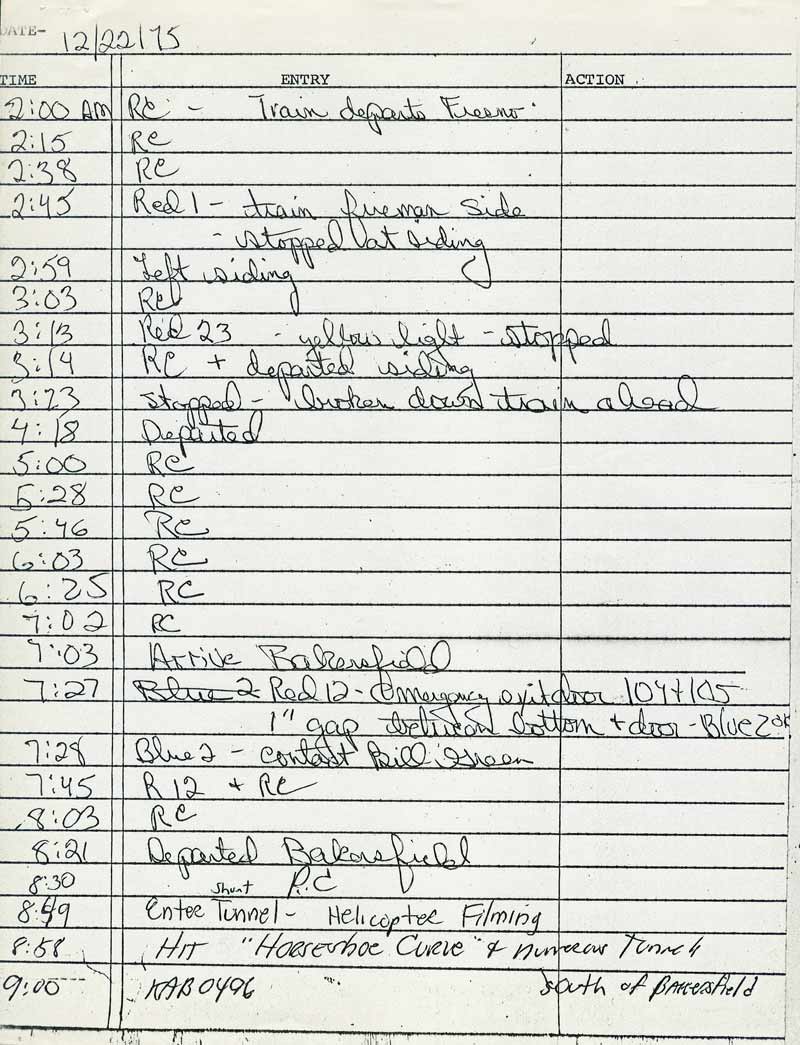 DATE- 12/22/75
TIME ENTRY ACTION
2:00 AM RC - Train departs Fresno
2:15 RC
2:38 RC
2:45 Red 1 - train fireman side
- stopped at siding
2:59 Left siding
3:03 RC
3:13 Red 23 - yellow light - stopped
3:14 RC + departed siding
3:23 Stopped - broken down train ahead
4:18 Departed
5:00 RC
5:28 RC
5:46 RC
6:03 RC
6:25 RC
7:02 RC
7:03 Arrive Bakersfield
7:27 Blue 2 Red 12 - Emergency exit door 104+105
1" gap between bottom + door - Blue 2 ok
7:28 Blue 2 - contact Bill Green
7:45 R 12 + RC
8:03 RC
8:21 Departed Bakersfield
8:30 RC
8:49 Enter Shunt Tunnel - Helicopter Filming
8:58 Hit "Horseshoe Curve" + numerous Tunnels
9:00 KAB0496 South of Bakersfield